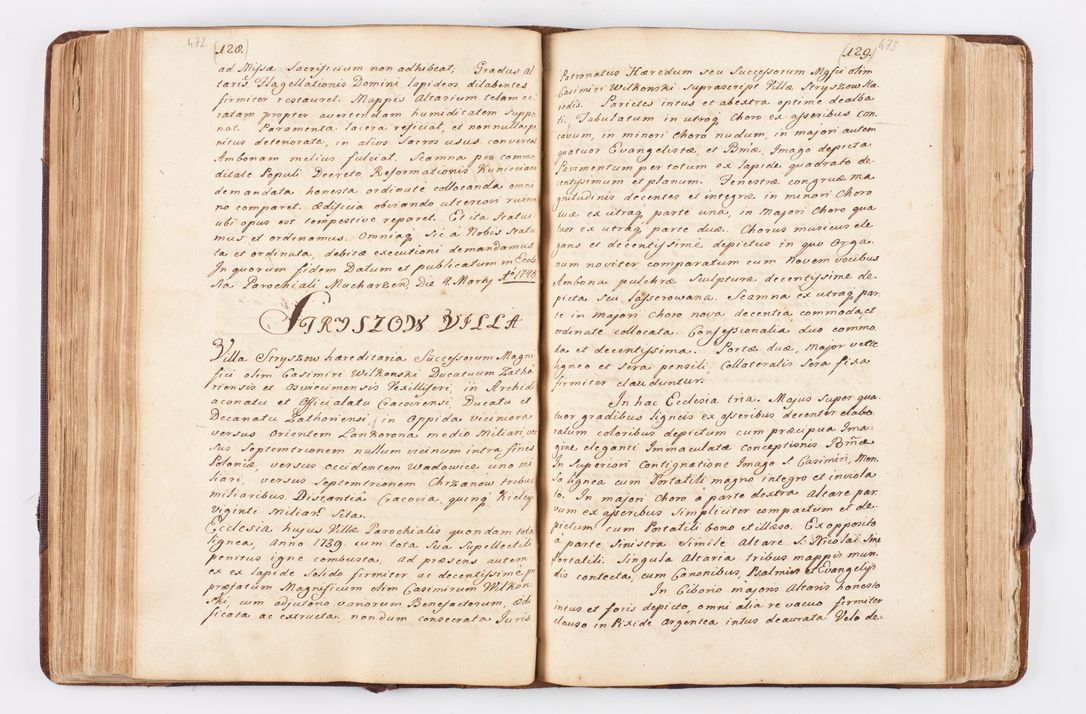 472
(128.)
ad Missæ Sacrificium non adhibeat, Gradus Al
taris Flagellationis Domini lapideos dilabentes
firmiter restauret. Mappis Altarium telam ce
ratam propter avertendam humiditatem suppo
nat. Paramenta lacera reficiat, et nonnulla pe
nitus deteriorata, in alios Sacros usus convertat
Ambonam melius fulciat. Scamna pro commo
ditate Populi Decreto Reformationis Kunicciano
demandata honesta ordinatè collocanda omni
no comparet. Ædificia obviando ulteriori ruinæ
ubi opus est tempestive reparet. Et ita Statui
mus et ordinamus. Omniaq̃ sic à Nobis Statu
ta et ordinata, debitæ executioni demandamus
In quorum fidem Datum et publicatum in Eccle
sia Parochiali Mucharzen. Die 4. Martij Aō. 1748.
STRYSZOW VILLA
Villa Stryszow hæreditaria Successorum Magni
fici olim Casimiri Wilkonski Ducatuum Zatho
riensis et Oswiecimensis Vexilliferi, in Archidi
aconatu et Officialatu Cracoviensi, Ducatu et
Decanatu Zathoriensi in Oppida viciniora
versus Orientem Lankorona medio Miliari, ver
sus Septemtrionem nullum vicinum intra fines
Poloniæ, versus Occidentem Wadowice uno mi
liari, versus Septemtrionem Chrzanow tribus
miliaribus. Distantia Cracovia, quinq̃
viginti Miliar. Sita.
Ecclesia hujus Villæ Parochialis quondam tota
lignea, Anno 1739. cum tota Sua Supellectili
penitus igne combusta, ad præsens autem
ex lapide Solido firmiter ac decentissimè per
præfatum Magnificum olim Casimirum Wilkon
ski, cum adjutorio variorum Benefactorum, Ædi
ficata ac extructa. nondum consecrata Juris
(129.)
473
Patronatus Hæredum seu Successorum Mgfici olim
Casimiri Wilkonski Suprascript. Villæ Stryszow Hæ
redis. Parietes intus et ab extra optime dealba
ti, Tabulatum in utroq̃ Choro ex asseribus con
cavum, in minori Choro nudum, in majori autem
quatuor Evangelistæ, et Bmæ, Imago depicta
Pavimentum per totum ex lapide quadrato de
centissimum et planum. Fenestræ congruæ ma
gnitudinis decentes et integræ in minori Choro
duæ ex utraq̃ parte una, in Majori Choro qua
tuor ex utraq̃ parte duæ. Chorus musicus ele
gans et decentissimè depictus in quo Orga
num noviter comparatum cum Novem vocibus
Ambona pulchræ Sculpturæ decentissime de
picta seu lasserowana. Scamna ex utraq̃ par
te in majori Choro nova decentia commoda, et
ordinatè collocata. Confessionalia duo commo
da et decentissima. Portæ duæ, Major vecte
ligneo et Sera pensili, Collateralis Sera fixa
firmiter clauduntur.
In hac Ecclesia tria. Majus Super qua
tuor gradibus ligneis ex asseribus decenter elabo
ratum coloribus depictum cum præcipua Ima
gine eleganti Immaculatæ Conceptionis Bm̃æ
In Superiori Contignatione Imago S. Casimiri, Men
sa lignea cum Portatili magno integro et inviola
to. In majori Choro à parte dextra Altare par
vum ex asseribus Simpliciter compactum et de
pictum cum Portatili bono et illæso. Ex opposito
à parte Sinistra Simile Altare S. Nicolai Sine
Portatili. Singula Altaria tribus mappis mun
dis contecta, cum Canonibus, Psalmis et Evangelijs
In Ciborio majoris Altaris honesto
intus et foris depicto, omni alia re vacuo firmiter
clauso in Pixide Argentea intus deaurata Velo de-